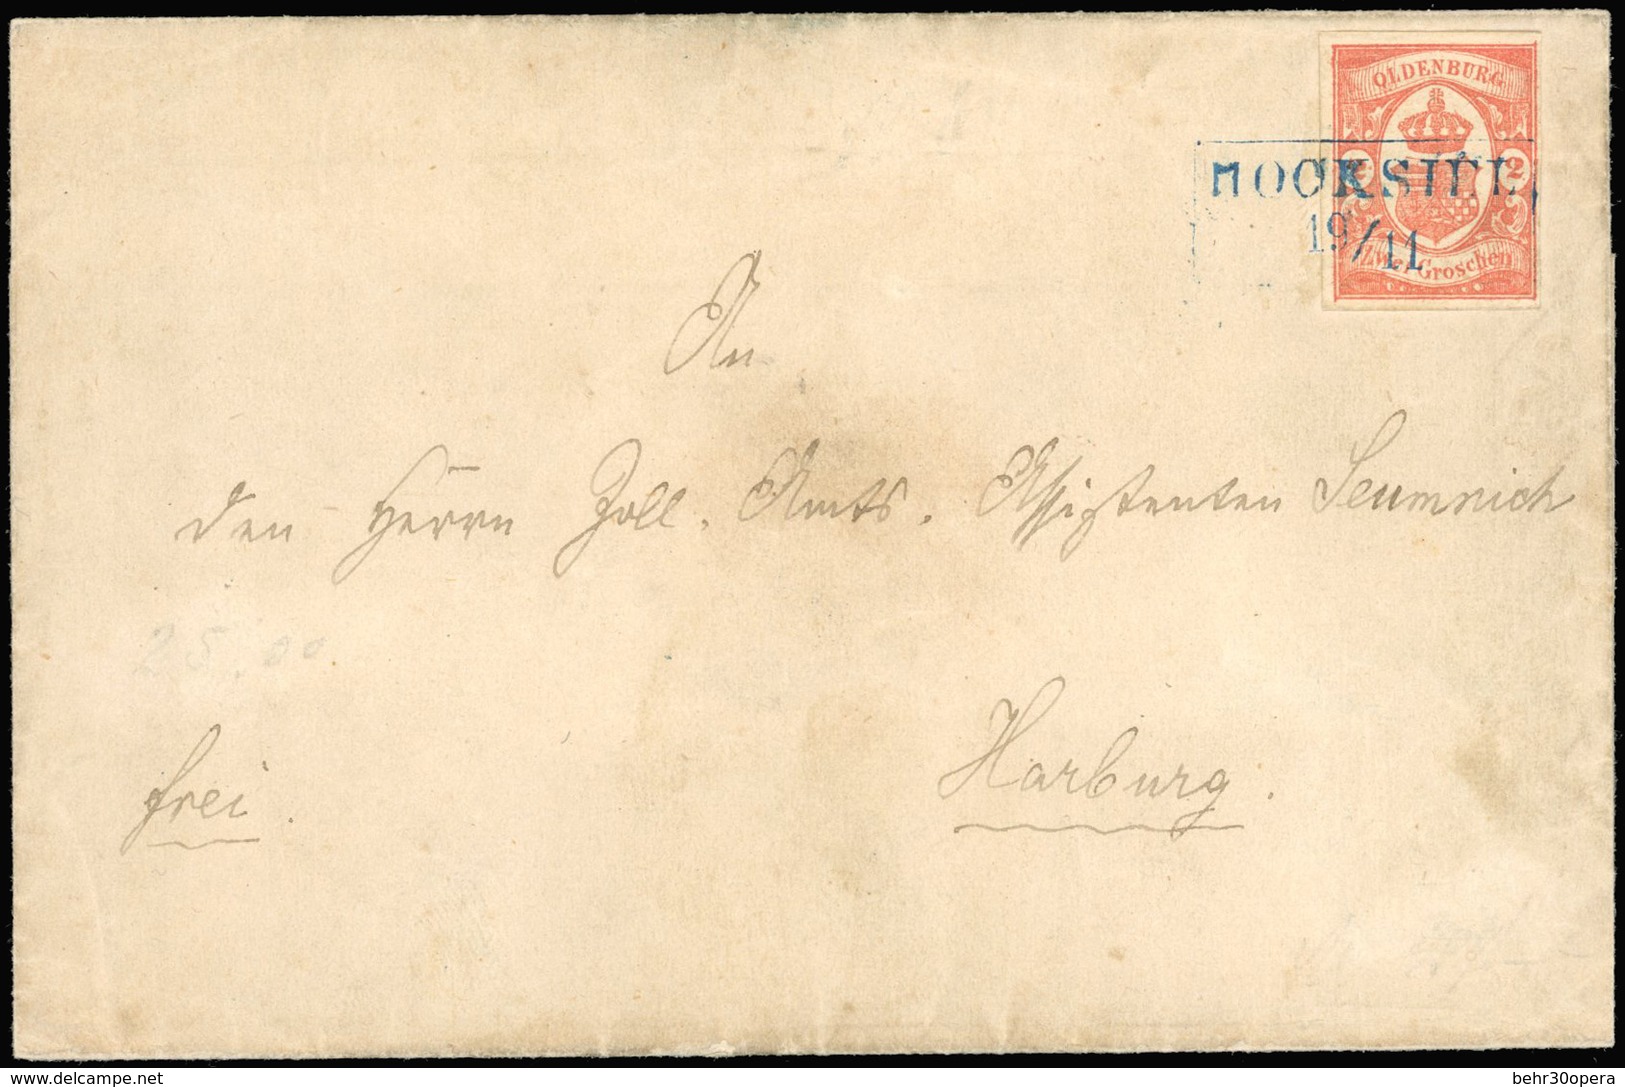 OLDENBURG
2 2
Zwei Groschen
HOOKSIEL
19/11
An
den Herrn Zoll. Amts. Assistenten
Harburg.
frei.
25.00
delcampe.net
behr30opera